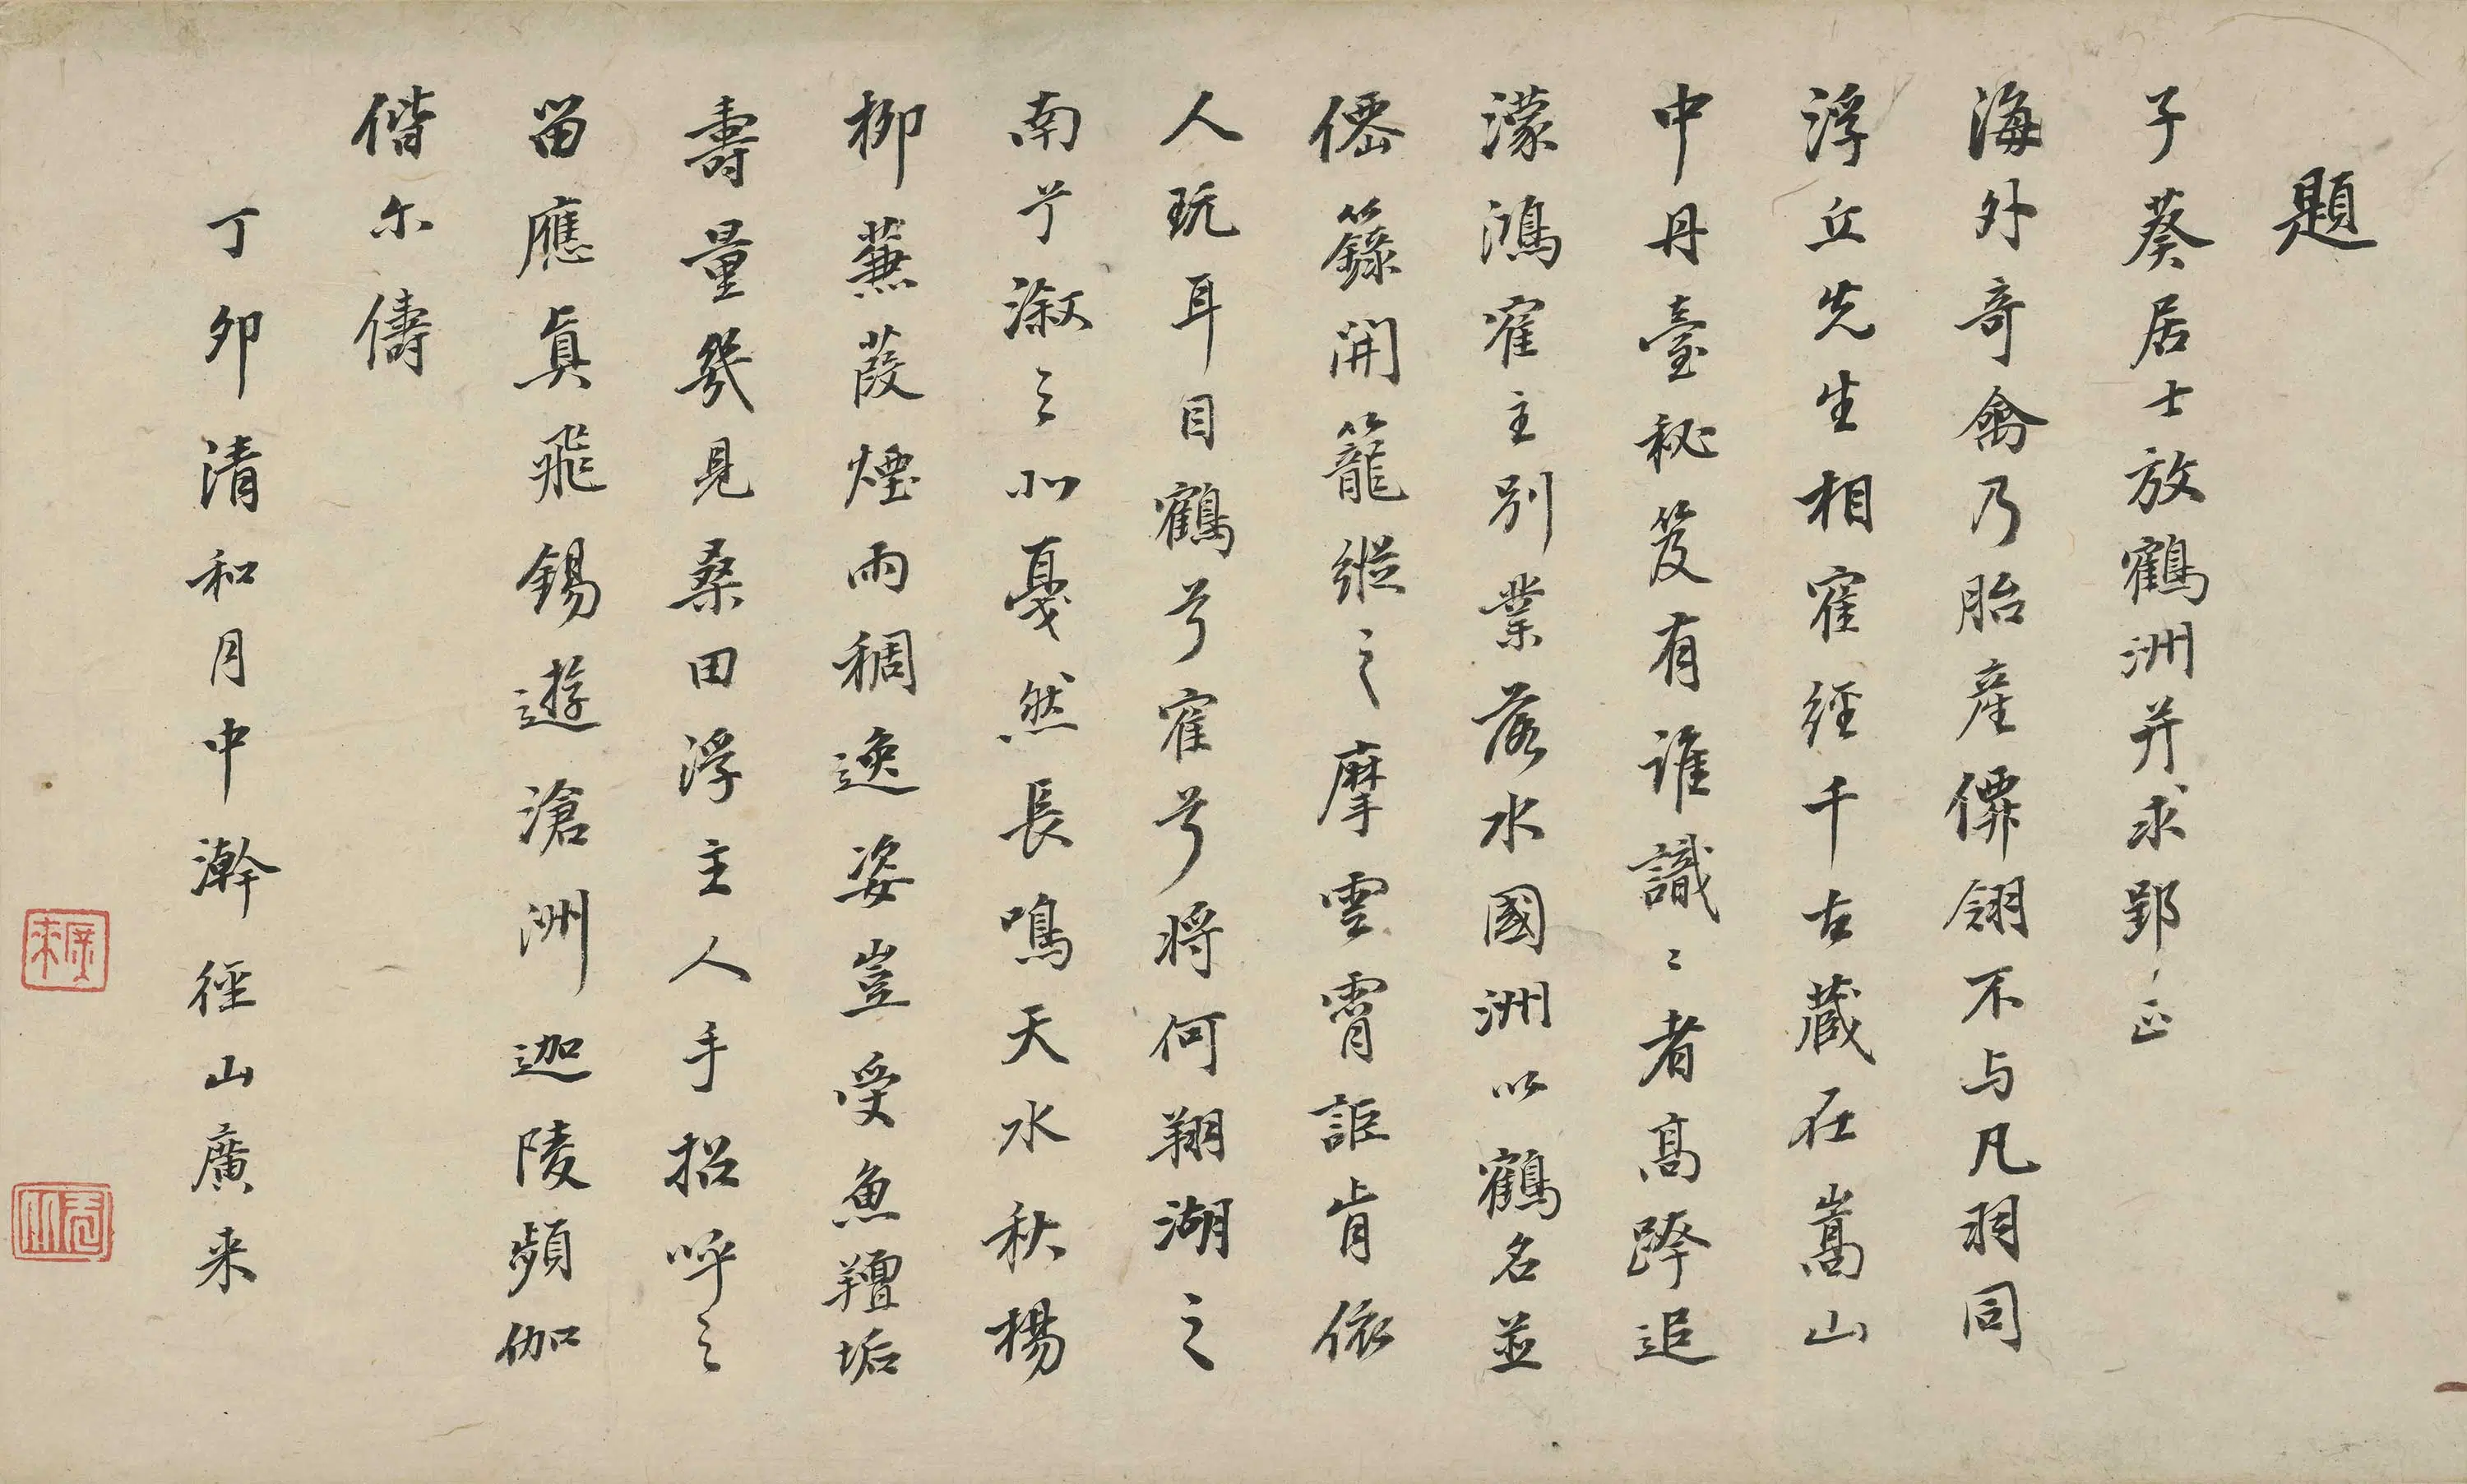 題
子葵居士放鶴洲并求郢正
海外奇禽乃胎產僊翎不与凡羽同
浮丘先生相寉經千古藏在嵩山
中丹臺秘笈有誰識〻者高跨追
濛鴻寉主別業落水國洲以鶴名並
僊籙開籠縱之摩雲霄詎肯依
人玩耳目鶴兮寉兮將何翔湖之
南兮溆之北戛然長鳴天水秋楊
柳蒹葭煙雨稠逸姿豈受魚羶垢
壽量幾見桑田浮主人手招呼之
留應真飛錫遊滄洲迦陵頻伽
偕尔儔
丁卯清和月中澣徑山廣来
廣来